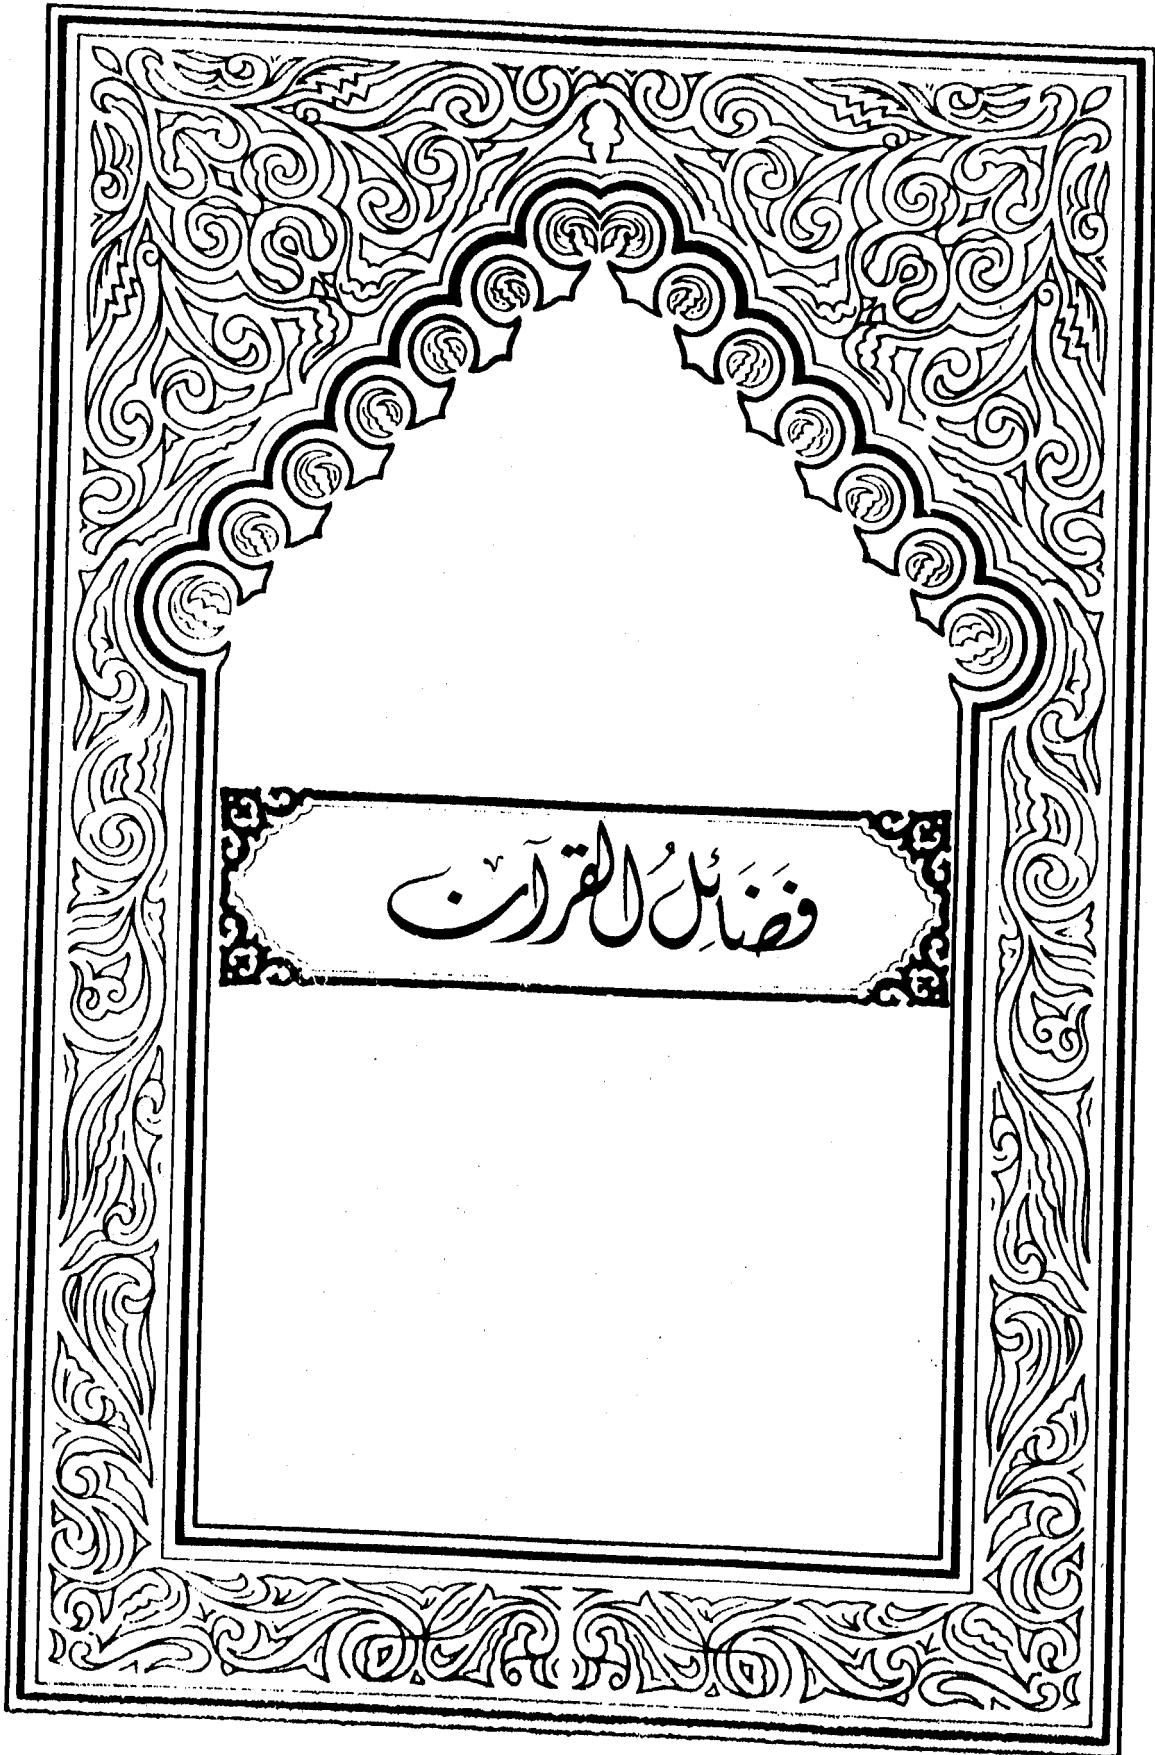 فَضَائِلُ القرآن